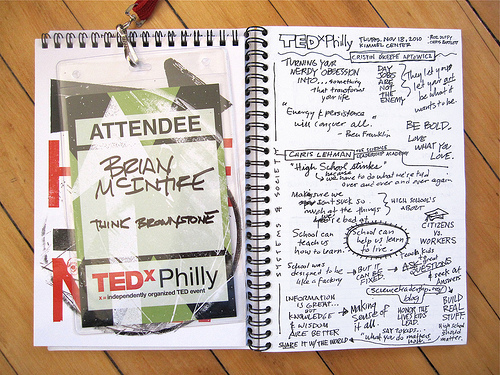 ATTENDEE
BRIAN
MCINTIRE
THINK BROWNSTONE
TEDx Philly
x = independently organized TED event
TEDxPhilly
NOV 18, 2010
KIMMEL CENTER
CRISTIN O'KEEFE APTOWICZ
TURNING YOUR
NERDY OBSESSION
INTO... something
that transforms
your life.
DAY
JOBS
ARE
NOT
THE
ENEMY
They let your
let your art
be what it
wants to be.
"Energy & persistence
will conquer all."
- Ben Franklin
BE BOLD.
LOVE
WHAT YOU
LOVE.
SYSTEMS & SOCIETY
CHRIS LEHMAN
SCIENCE
LEADERSHIP ACADEMY
"High School stinks."
because
we have to do what we're told
over and over and over again.
Make sure we
don't suck so
much at the things
we're bad at
HIGH SCHOOL'S
ABOUT
CITIZENS
VS.
WORKERS
School can
teach us
how to learn.
School can
help us learn
to live.
Teach kids
ASK
QUESTIONS
& seek out
ANSWERS
School was
designed to be
like a factory
BUT IT
CAN BE
FIXED
scienceleadership.org/
blog
INFORMATION
IS GREAT...
BUT
KNOWLEDGE
& WISDOM
ARE BETTER
SHARE IT W/ THE WORLD
Making
sense of
it all.
HONOR THE
LIVES KIDS
LEAD.
SAY TO KIDS...
"what you do matters"
BUILD
REAL
STUFF
High school
should
matter.